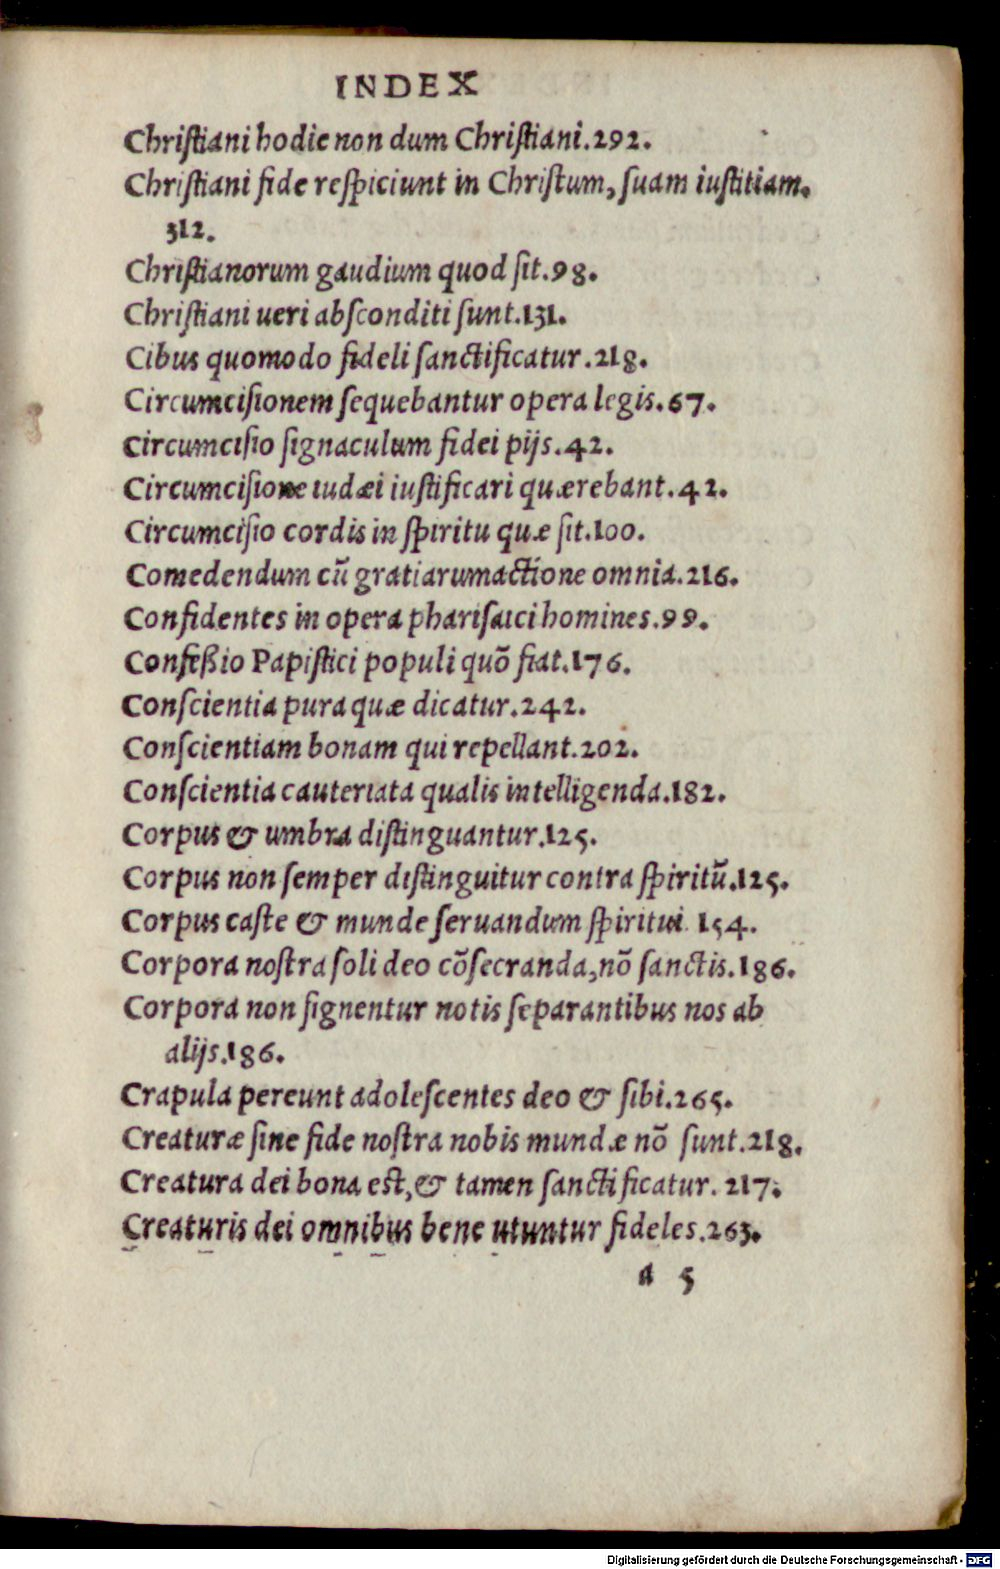 INDEX
Chriſtiani hodie non dum Chriſtiani.292.
Chriſtiani fide reſpiciunt in Chriſtum, ſuam iuſtitiam.
312.
Chriſtianorum gaudium quod ſit.98.
Chriſtiani ueri abſconditi ſunt.131.
Cibus quomodo fideli ſanctificatur.218.
Circumciſionem ſequebantur opera legis.67.
Circumciſio ſignaculum fidei pijs.42.
Circumciſione iudæi iuſtificari quærebant.42.
Circumciſio cordis in ſpiritu quæ ſit.100.
Comedendum cū gratiarumactione omnia.216.
Confidentes in opera phariſaici homines.99.
Confeßio Papiſtici populi quō fiat.176.
Conſcientia pura quæ dicatur.242.
Conſcientiam bonam qui repellant.202.
Conſcientia cauteriata qualis intelligenda.182.
Corpus & umbra diſtinguantur.125.
Corpus non ſemper diſtinguitur contra ſpiritū.125.
Corpus caſte & munde ſeruandum ſpiritui. 154.
Corpora noſtra ſoli deo cōſecranda, nō ſanctis.186.
Corpora non ſignentur notis ſeparantibus nos ab
alijs.186.
Crapula pereunt adoleſcentes deo & ſibi.265.
Creaturæ ſine fide noſtra nobis mundæ nō ſunt.218.
Creatura dei bona est, & tamen ſanctificatur. 217.
Creaturis dei omnibus bene utuntur fideles.263.
a 5
Digitalisierung gefördert durch die Deutsche Forschungsgemeinschaft - DFG